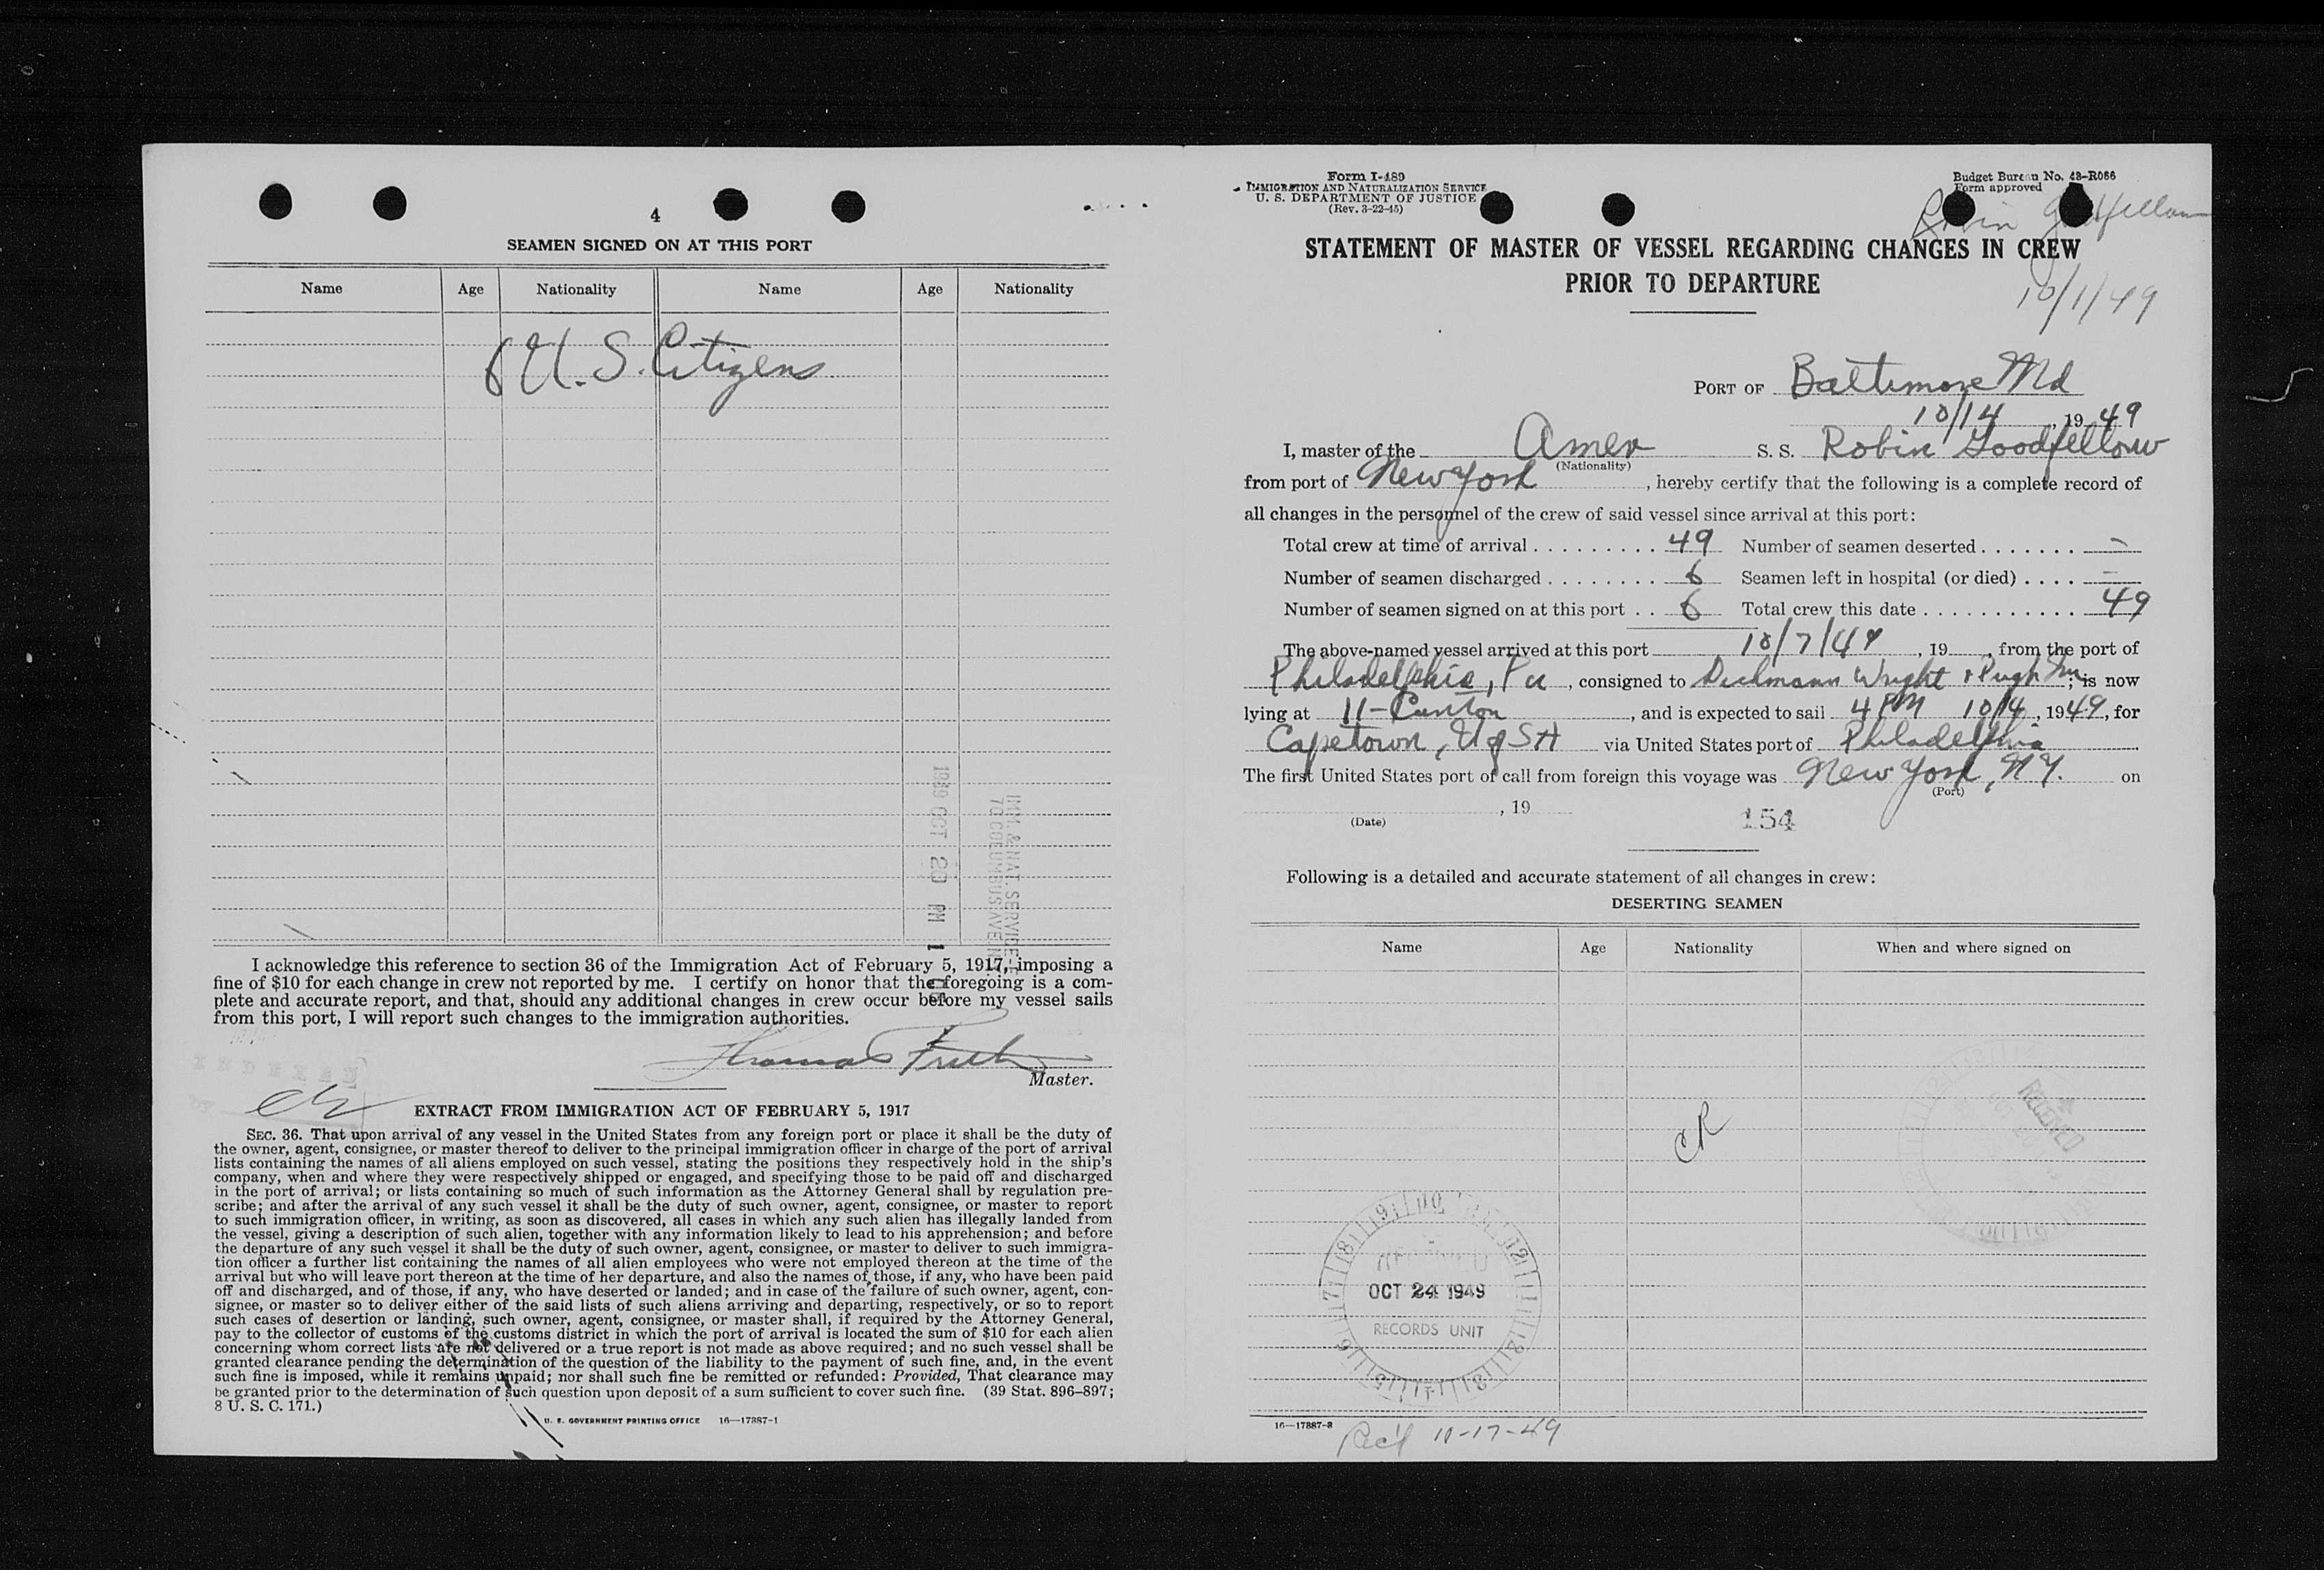 4
SEAMEN SIGNED ON AT THIS PORT
Name Age Nationality Name Age Nationality
6 U. S. Citizens
1949 OCT 20 PM 1
IMM. & NAT. SERVICE
70 COLUMBUS AVE N
I acknowledge this reference to section 36 of the Immigration Act of February 5, 1917, imposing a
fine of $10 for each change in crew not reported by me. I certify on honor that the foregoing is a com-
plete and accurate report, and that, should any additional changes in crew occur before my vessel sails
from this port, I will report such changes to the immigration authorities.
Thomas
Master.
EXTRACT FROM IMMIGRATION ACT OF FEBRUARY 5, 1917
SEC. 36. That upon arrival of any vessel in the United States from any foreign port or place it shall be the duty of
the owner, agent, consignee, or master thereof to deliver to the principal immigration officer in charge of the port of arrival
lists containing the names of all aliens employed on such vessel, stating the positions they respectively hold in the ship's
company, when and where they were respectively shipped or engaged, and specifying those to be paid off and discharged
in the port of arrival; or lists containing so much of such information as the Attorney General shall by regulation pre-
scribe; and after the arrival of any such vessel it shall be the duty of such owner, agent, consignee, or master to report
to such immigration officer, in writing, as soon as discovered, all cases in which any such alien has illegally landed from
the vessel, giving a description of such alien, together with any information likely to lead to his apprehension; and before
the departure of any such vessel it shall be the duty of such owner, agent, consignee, or master to deliver to such immigra-
tion officer a further list containing the names of all alien employees who were not employed thereon at the time of the
arrival but who will leave port thereon at the time of her departure, and also the names of those, if any, who have been paid
off and discharged, and of those, if any, who have deserted or landed; and in case of the failure of such owner, agent, con-
signee, or master so to deliver either of the said lists of such aliens arriving and departing, respectively, or so to report
such cases of desertion or landing, such owner, agent, consignee, or master shall, if required by the Attorney General,
pay to the collector of customs of the customs district in which the port of arrival is located the sum of $10 for each alien
concerning whom correct lists are not delivered or a true report is not made as above required; and no such vessel shall be
granted clearance pending the determination of the question of the liability to the payment of such fine, and, in the event
such fine is imposed, while it remains unpaid; nor shall such fine be remitted or refunded: Provided, That clearance may
be granted prior to the determination of such question upon deposit of a sum sufficient to cover such fine. (39 Stat. 896–897;
8 U. S. C. 171.)
U. S. GOVERNMENT PRINTING OFFICE 16—17887-1
Form I-489
IMMIGRATION AND NATURALIZATION SERVICE
U. S. DEPARTMENT OF JUSTICE
(Rev. 3-22-45)
Budget Bureau No. 43-R066
Form approved
Robin Goodfellow
STATEMENT OF MASTER OF VESSEL REGARDING CHANGES IN CREW
PRIOR TO DEPARTURE
10/1/49
PORT OF Baltimore Md
10/14, 1949
I, master of the Amer S. S. Robin Goodfellow
(Nationality)
from port of New York, hereby certify that the following is a complete record of
all changes in the personnel of the crew of said vessel since arrival at this port:
Total crew at time of arrival . . . . . . . . . 49 Number of seamen deserted . . . . . . . –
Number of seamen discharged . . . . . . . . 6 Seamen left in hospital (or died) . . . . –
Number of seamen signed on at this port . . 6 Total crew this date . . . . . . . . . . . 49
The above-named vessel arrived at this port 10/7/49, 19 , from the port of
Philadelphia, Pa, consigned to Dichmann Wright & Pugh Inc; is now
lying at 11-Canton, and is expected to sail 4 PM 10/14, 1949, for
Capetown, U of SA via United States port of Philadelphia
The first United States port of call from foreign this voyage was New York, NY. on
(Port)
, 19
(Date)
154
Following is a detailed and accurate statement of all changes in crew:
DESERTING SEAMEN
Name Age Nationality When and where signed on
CR
RECEIVED
RECEIVED
OCT 24 1949
RECORDS UNIT
16—17887-3
Rec'd 10-17-49